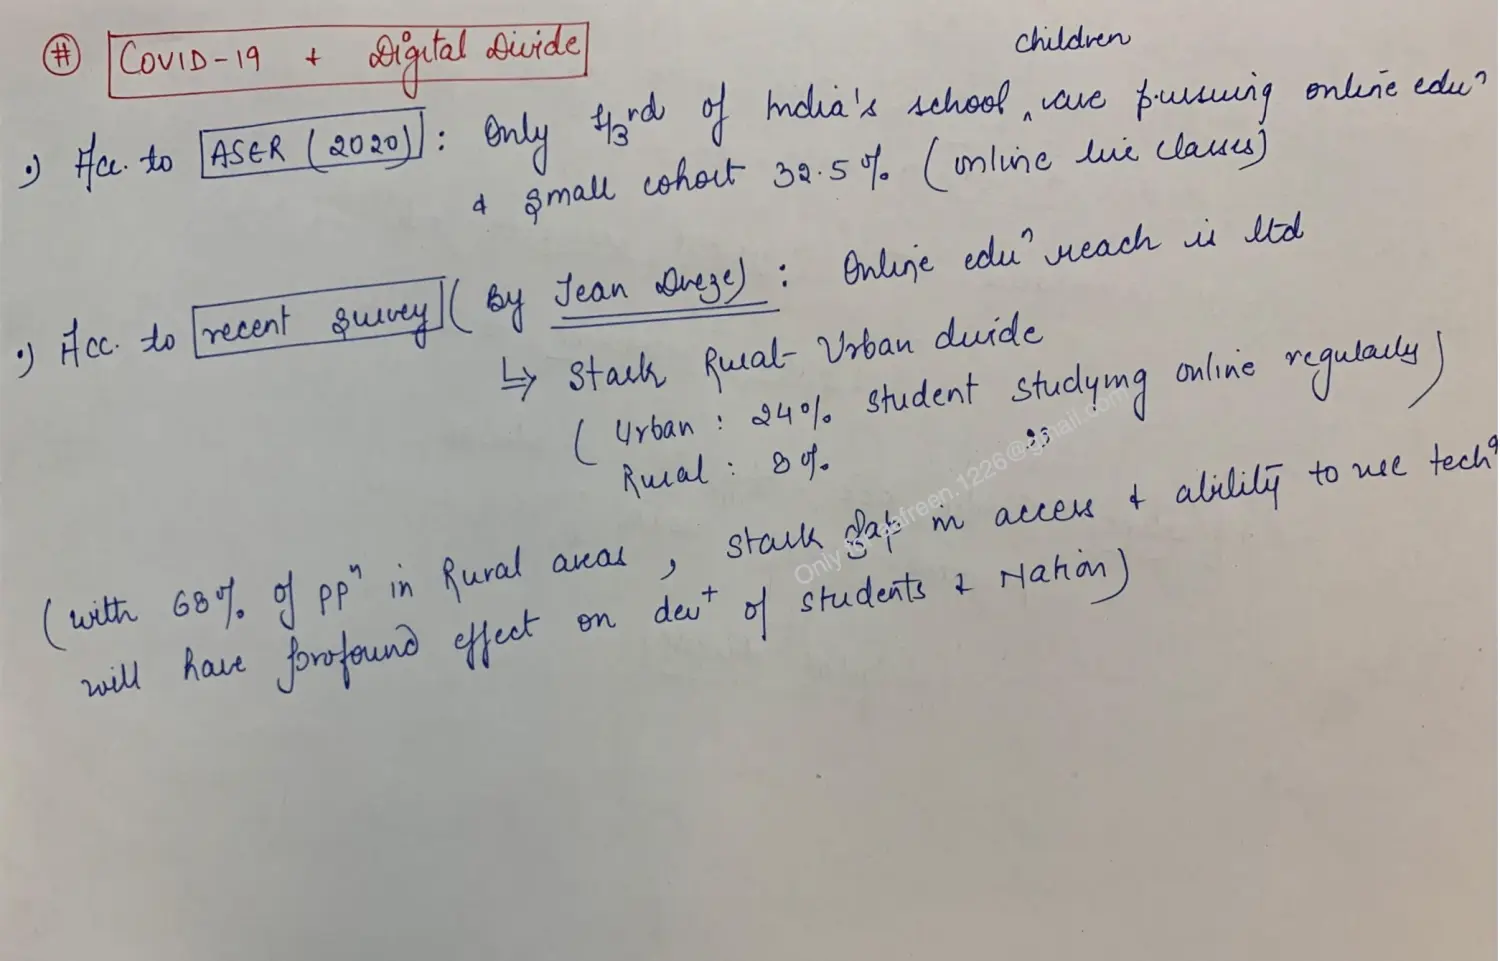 # COVID-19 + Digital Divide
children
•) Acc. to ASER (2020) : Only 1/3rd of India's school ^ are pursuing online eduⁿ
& small cohort 32.5% (online live classes)
•) Acc. to recent survey (By Jean Dreze) : Online eduⁿ reach is ltd
↳ Stark Rural-Urban divide
( Urban : 24% student studying online regularly)
Rural : 8% "
(with 68% of ppⁿ in Rural areas, stark gap in access & ability to use techⁿ
will have profound effect on dev⁺ of students & Nation)
Only for afreen.1226@gmail.com